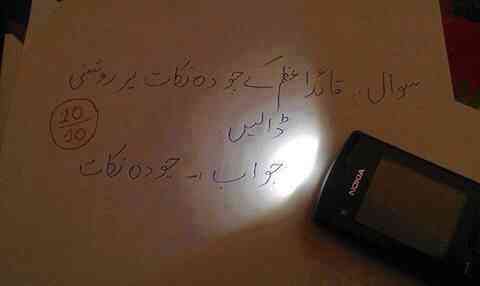 سوال: قائداعظم کے چودہ نکات پر روشنی
ڈالیں
10/10
جواب:- چودہ نکات
NOKIA